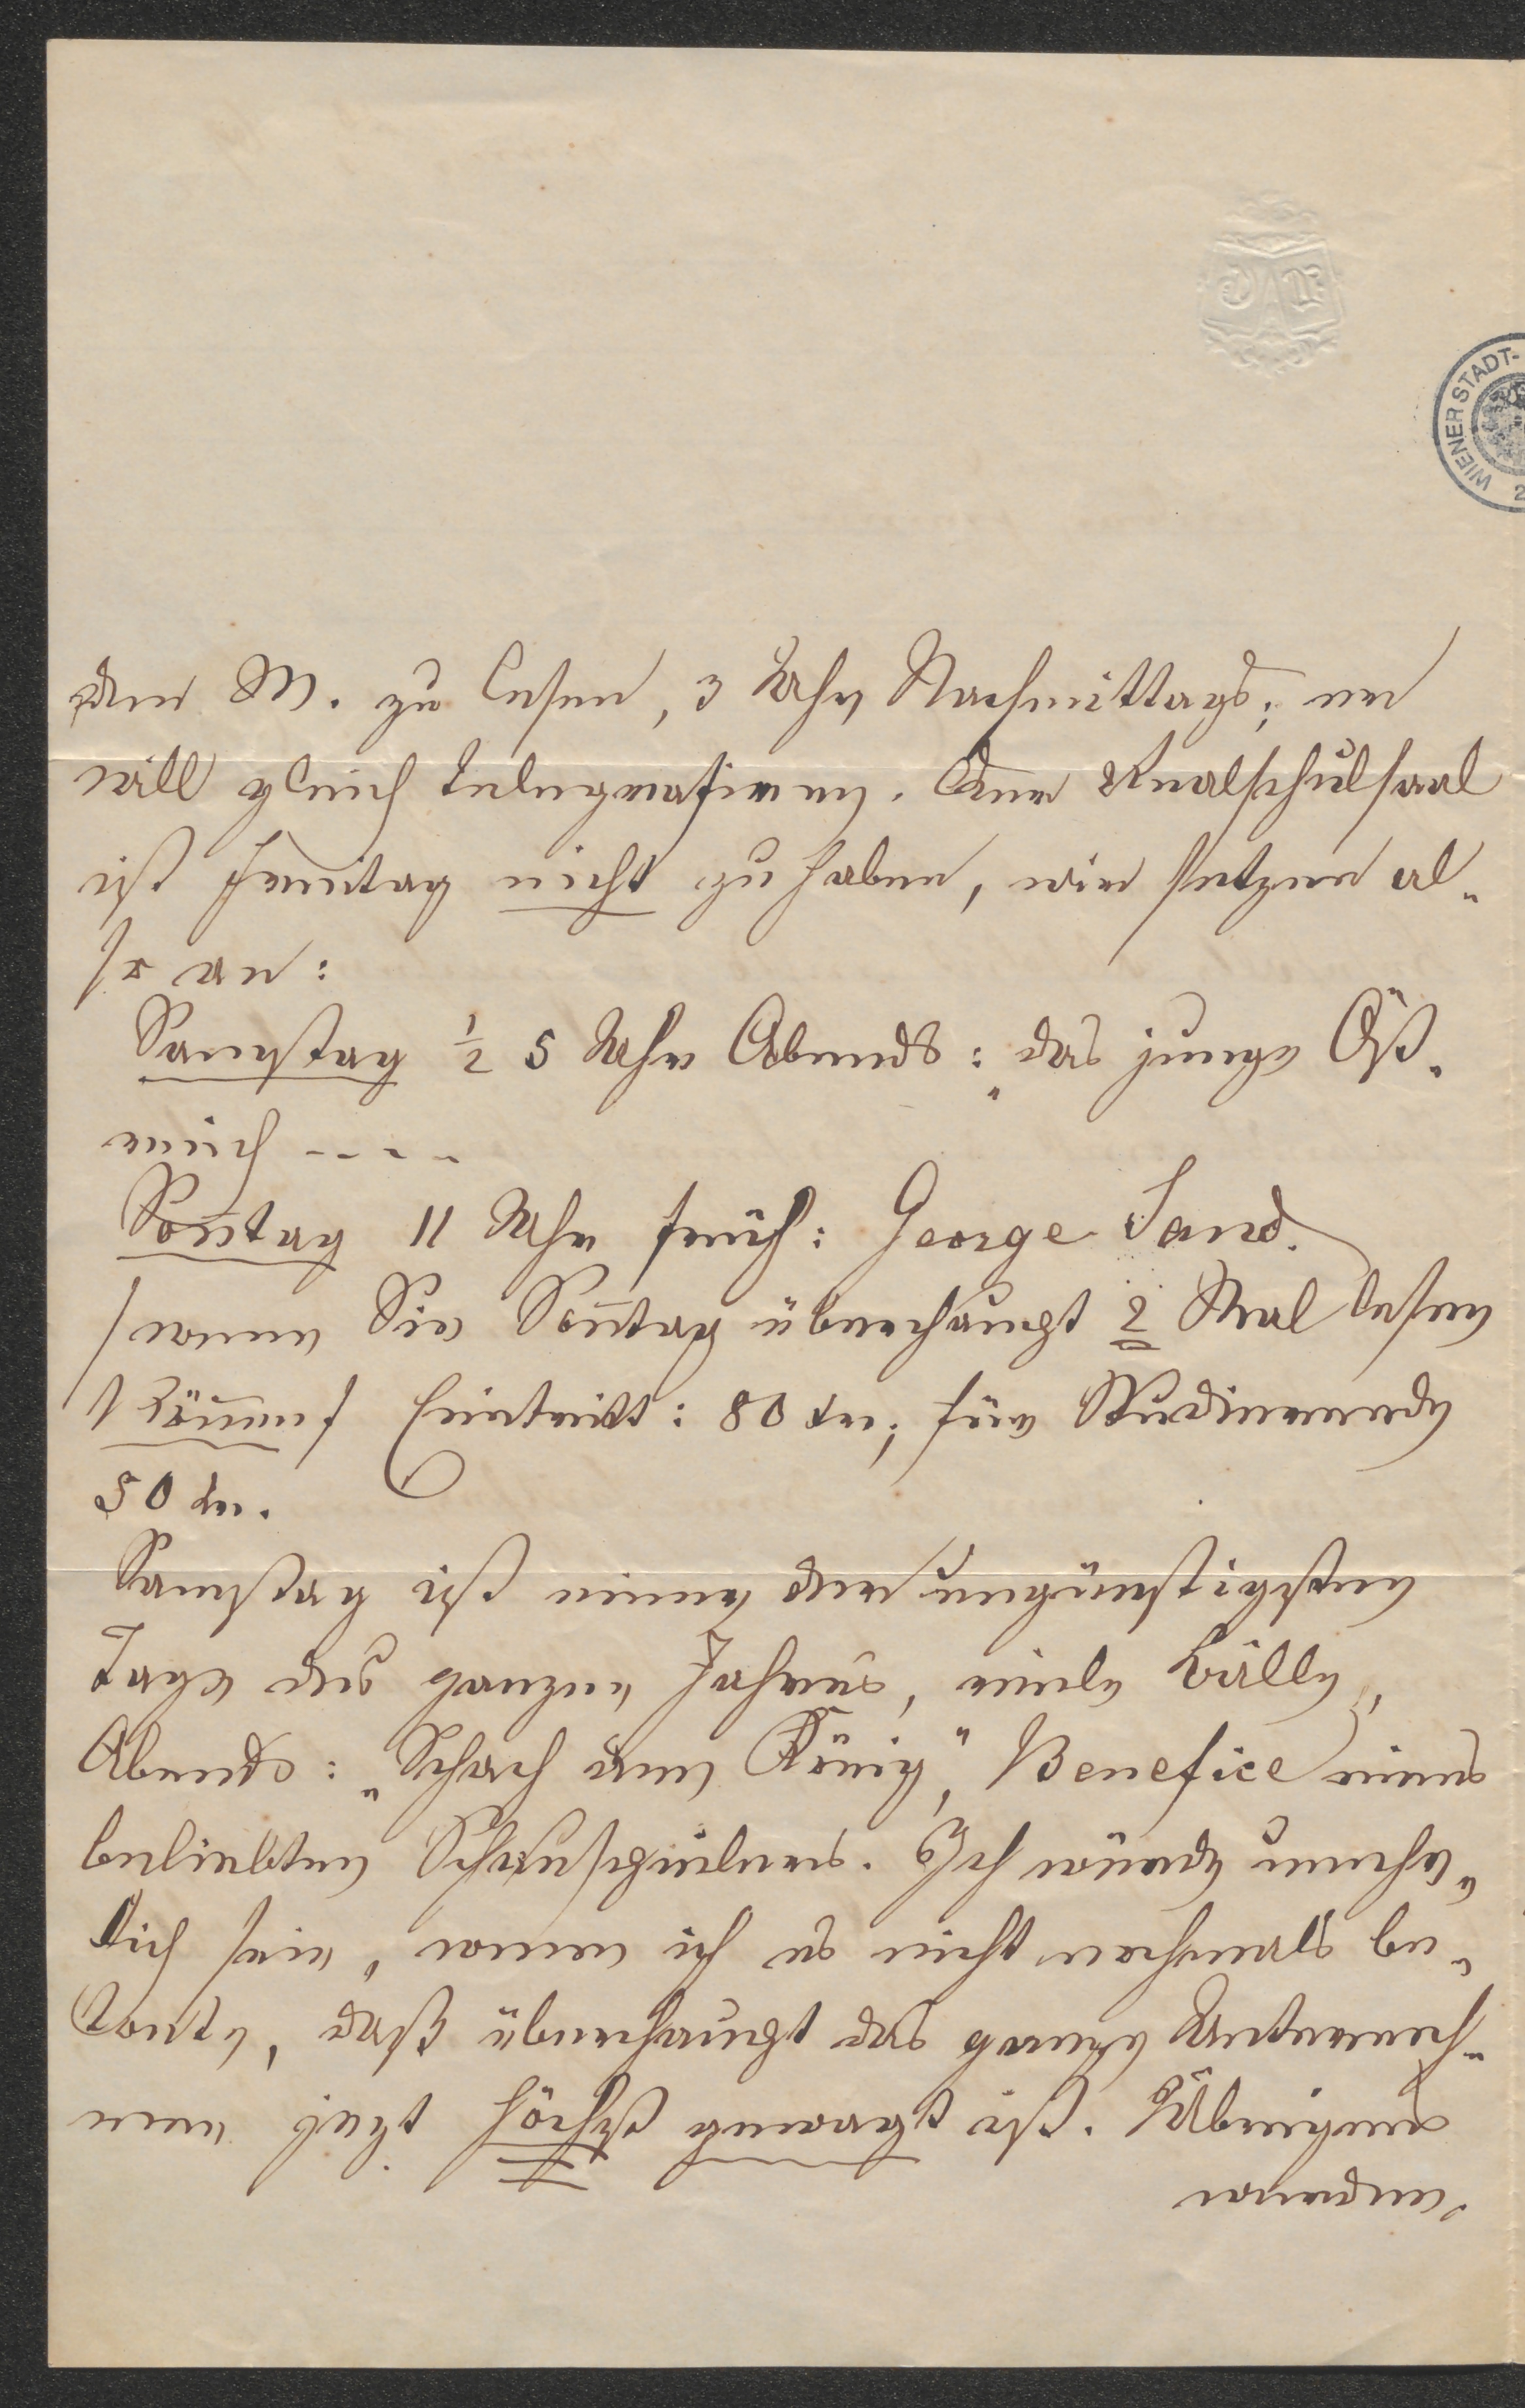 WIENER STADT-
2
der M. zu lesen, 3 Uhr Nachmittags; er
will gleich telegrafieren. Der Realschulsaal
ist Freitag nicht zu haben, wir setzen al-
so an:
Samstag ½ 5 Uhr Abends: „das junge Öst.
reich - - - -
Soñtag 11 Uhr früh: George Sand.
/ wenn Sie Soñtag überhaupt 2 Mal lesen
köñen / Eintritt: 80 kr; für Studierende
50 kr.
Samstag ist einer der ungünstigsten
Tage des ganzen Jahres, viele Bälle,
Abends: „Schach dem König", Benefice eines
beliebten Schauspielers. Ich würde unehr-
lich sein, wenn ich es nicht nochmals be-
tonte, daß überhaupt das ganze Unterneh-
men jezt höchst gewagt ist. Übrigens
werden